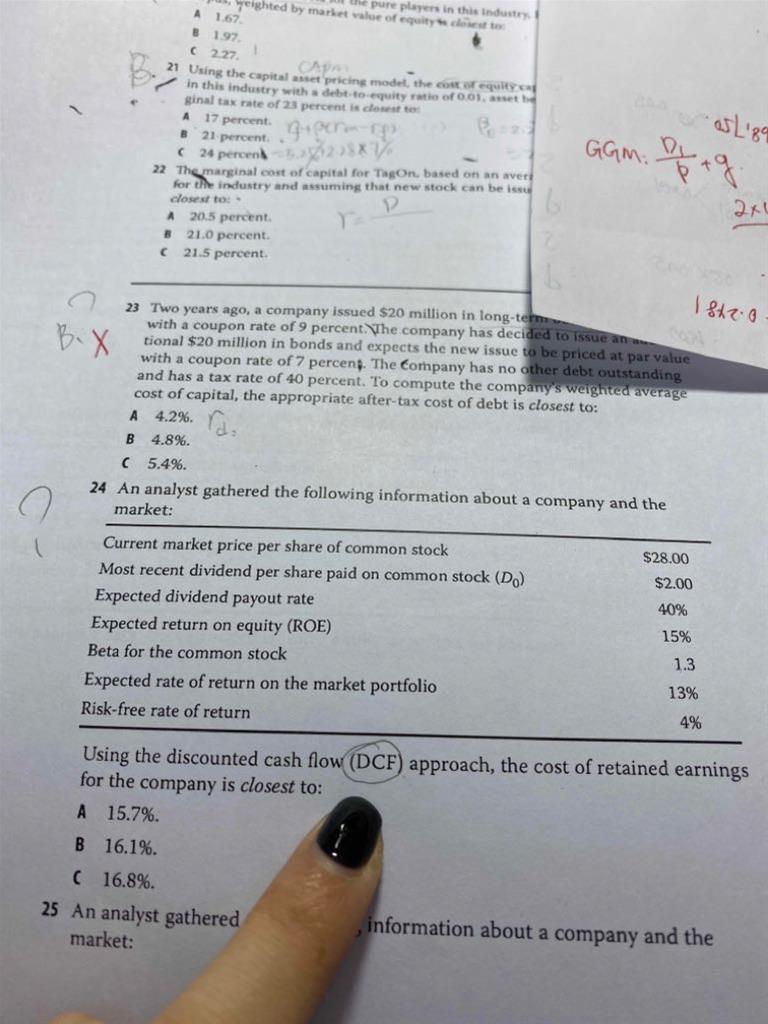 weighted by market value of equity is closest to:
the pure players in this industry,
A 1.67.
B 1.97.
C 2.27.
B.
CAPM
21 Using the capital asset pricing model, the cost of equity
in this industry with a debt-to-equity ratio of 0.01, asset
ginal tax rate of 23 percent is closest to:
A 17 percent.
B 21 percent.
C 24 percent
22 The marginal cost of capital for TagOn, based on an
for the industry and assuming that new stock can be
closest to:
A 20.5 percent.
r = D
B 21.0 percent.
C 21.5 percent.
GGM: D1
P + g
?
B. X
23 Two years ago, a company issued $20 million in
with a coupon rate of 9 percent. The company has decided to issue an
tional $20 million in bonds and expects the new issue to be priced at par value
with a coupon rate of 7 percent. The company has no other debt outstanding
and has a tax rate of 40 percent. To compute the company's weighted average
cost of capital, the appropriate after-tax cost of debt is closest to:
A 4.2%. rd:
B 4.8%.
C 5.4%.
?
24 An analyst gathered the following information about a company and the
market:
Current market price per share of common stock $28.00
Most recent dividend per share paid on common stock (D0) $2.00
Expected dividend payout rate 40%
Expected return on equity (ROE) 15%
Beta for the common stock 1.3
Expected rate of return on the market portfolio 13%
Risk-free rate of return 4%
Using the discounted cash flow (DCF) approach, the cost of retained earnings
for the company is closest to:
A 15.7%.
B 16.1%.
C 16.8%.
25 An analyst gathered , information about a company and the
market: